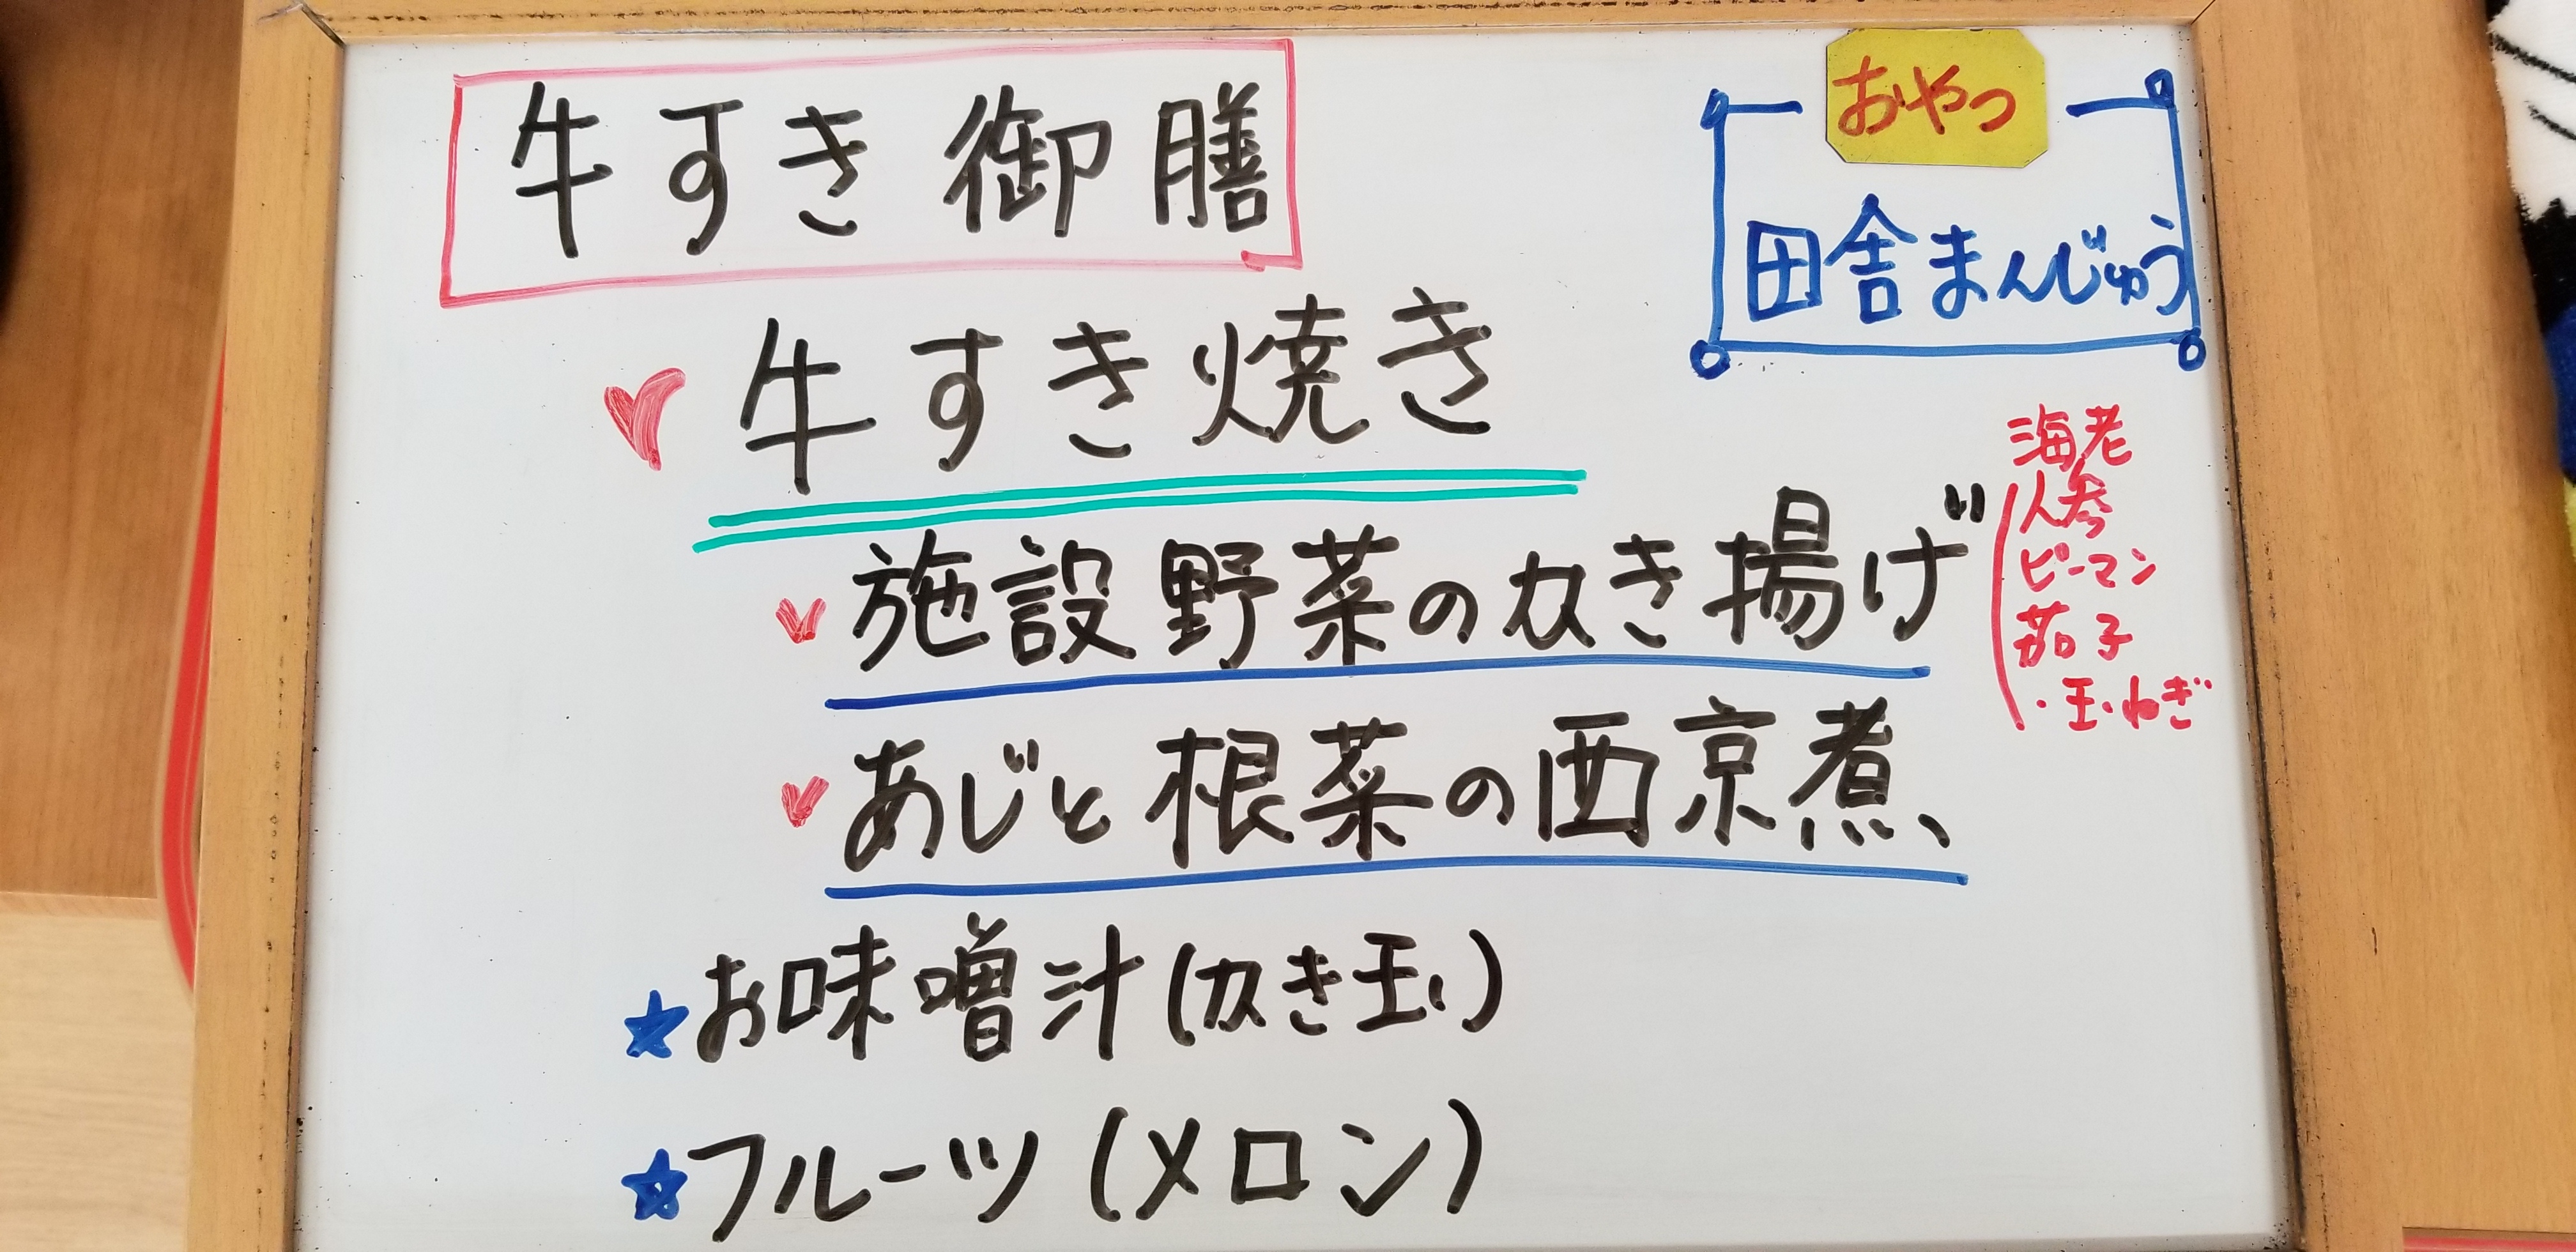 牛すき御膳
おやつ
田舎まんじゅう
牛すき焼き
施設野菜のかき揚げ
海老
人参
ピーマン
茄子
・玉ねぎ
あじと根菜の西京煮
お味噌汁(かき玉)
フルーツ(メロン)